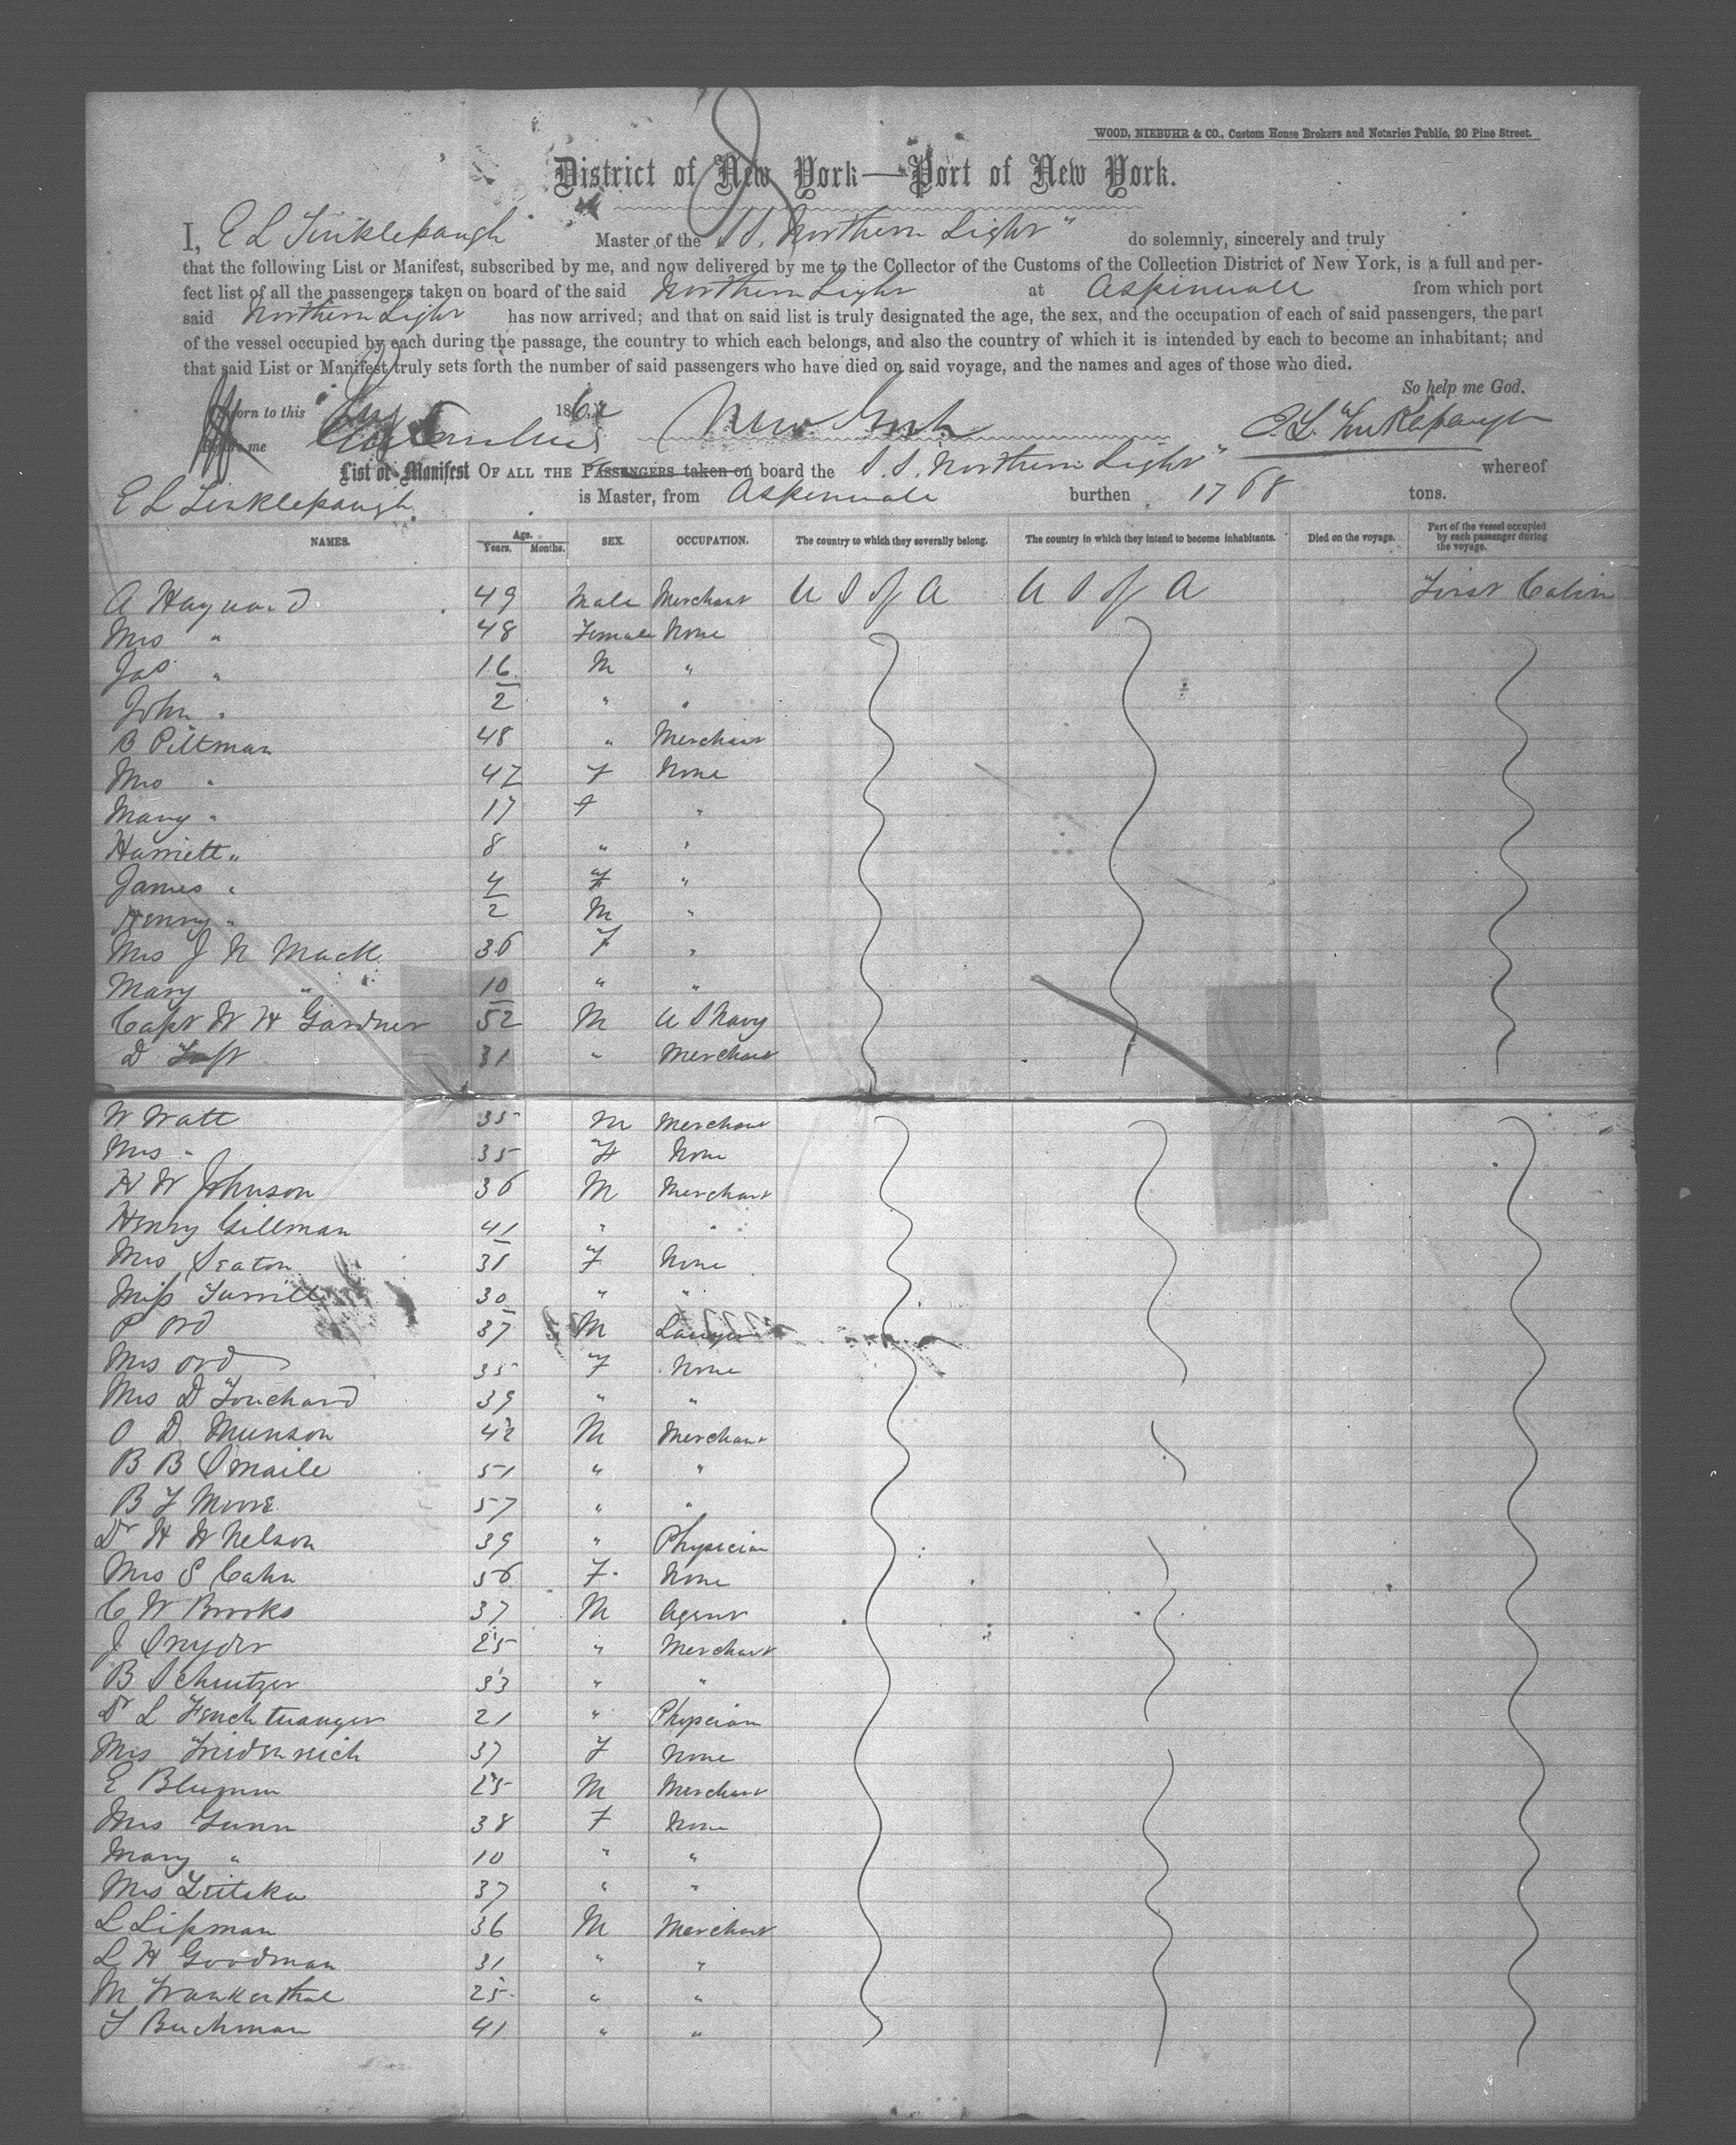 8
WOOD, NIEBUHR & CO., Custom House Brokers and Notaries Public, 20 Pine Street.
District of New York—Port of New York.
I, E L Tinklepaugh Master of the S.S. Northern Light" do solemnly, sincerely and truly
that the following List or Manifest, subscribed by me, and now delivered by me to the Collector of the Customs of the Collection District of New York, is a full and per-
fect list of all the passengers taken on board of the said Northern Light at Aspinwall from which port
said Northern Light has now arrived; and that on said list is truly designated the age, the sex, and the occupation of each of said passengers, the part
of the vessel occupied by each during the passage, the country to which each belongs, and also the country of which it is intended by each to become an inhabitant; and
that said List or Manifest truly sets forth the number of said passengers who have died on said voyage, and the names and ages of those who died.
So help me God.
Sworn to this 186 New York E. L. Tinklepaugh
before me
List or Manifest OF ALL THE PASSENGERS taken on board the S.S. Northern Light" whereof
E L Tinklepaugh is Master, from Aspinwall burthen 1768 tons.
NAMES. Age. Years. Months. SEX. OCCUPATION. The country to which they severally belong. The country in which they intend to become inhabitants. Died on the voyage. Part of the vessel occupied by each passenger during the voyage.
A Hayward 49 Male Merchant U S of A U S of A First Cabin
Mrs " 48 Female None
Jas " 16 M "
John " 2 " "
B Pittman 48 " Merchant
Mrs " 42 F None
Mary " 17 F "
Harriett " 8 " "
James " 4 F "
Henry " 2 M "
Mrs J N Mack 36 F "
Mary " 10 " "
Capt W H Gardner 52 M U S Navy
D Taft 31 " Merchant
W Watt 35 M Merchant
Mrs " 35 F None
H W Johnson 36 M Merchant
Henry Gillman 41 " "
Mrs Seaton 38 F None
Miss Turrill 30 " "
P Ord 37 M Lawyer
Mrs Ord 35 F None
Mrs D Touchard 39 " "
O D Munson 42 M Merchant
B B Smaile 51 " "
B F Moore 57 " "
Dr H W Nelson 39 " Physician
Mrs S Cahn 56 F. None
C W Brooks 37 M Agent
J Snyder 25 " Merchant
B Schutzer 33 " "
Dr L Feuchtwanger 21 " Physician
Mrs Friedenrich 37 F None
E Blumm 25 M Merchant
Mrs Gunn 38 F None
Mary " 10 " "
Mrs 37 " "
L Lipman 36 M Merchant
L H Goodman 31 " "
M Frankenthal 25 " "
F Buchman 41 " "